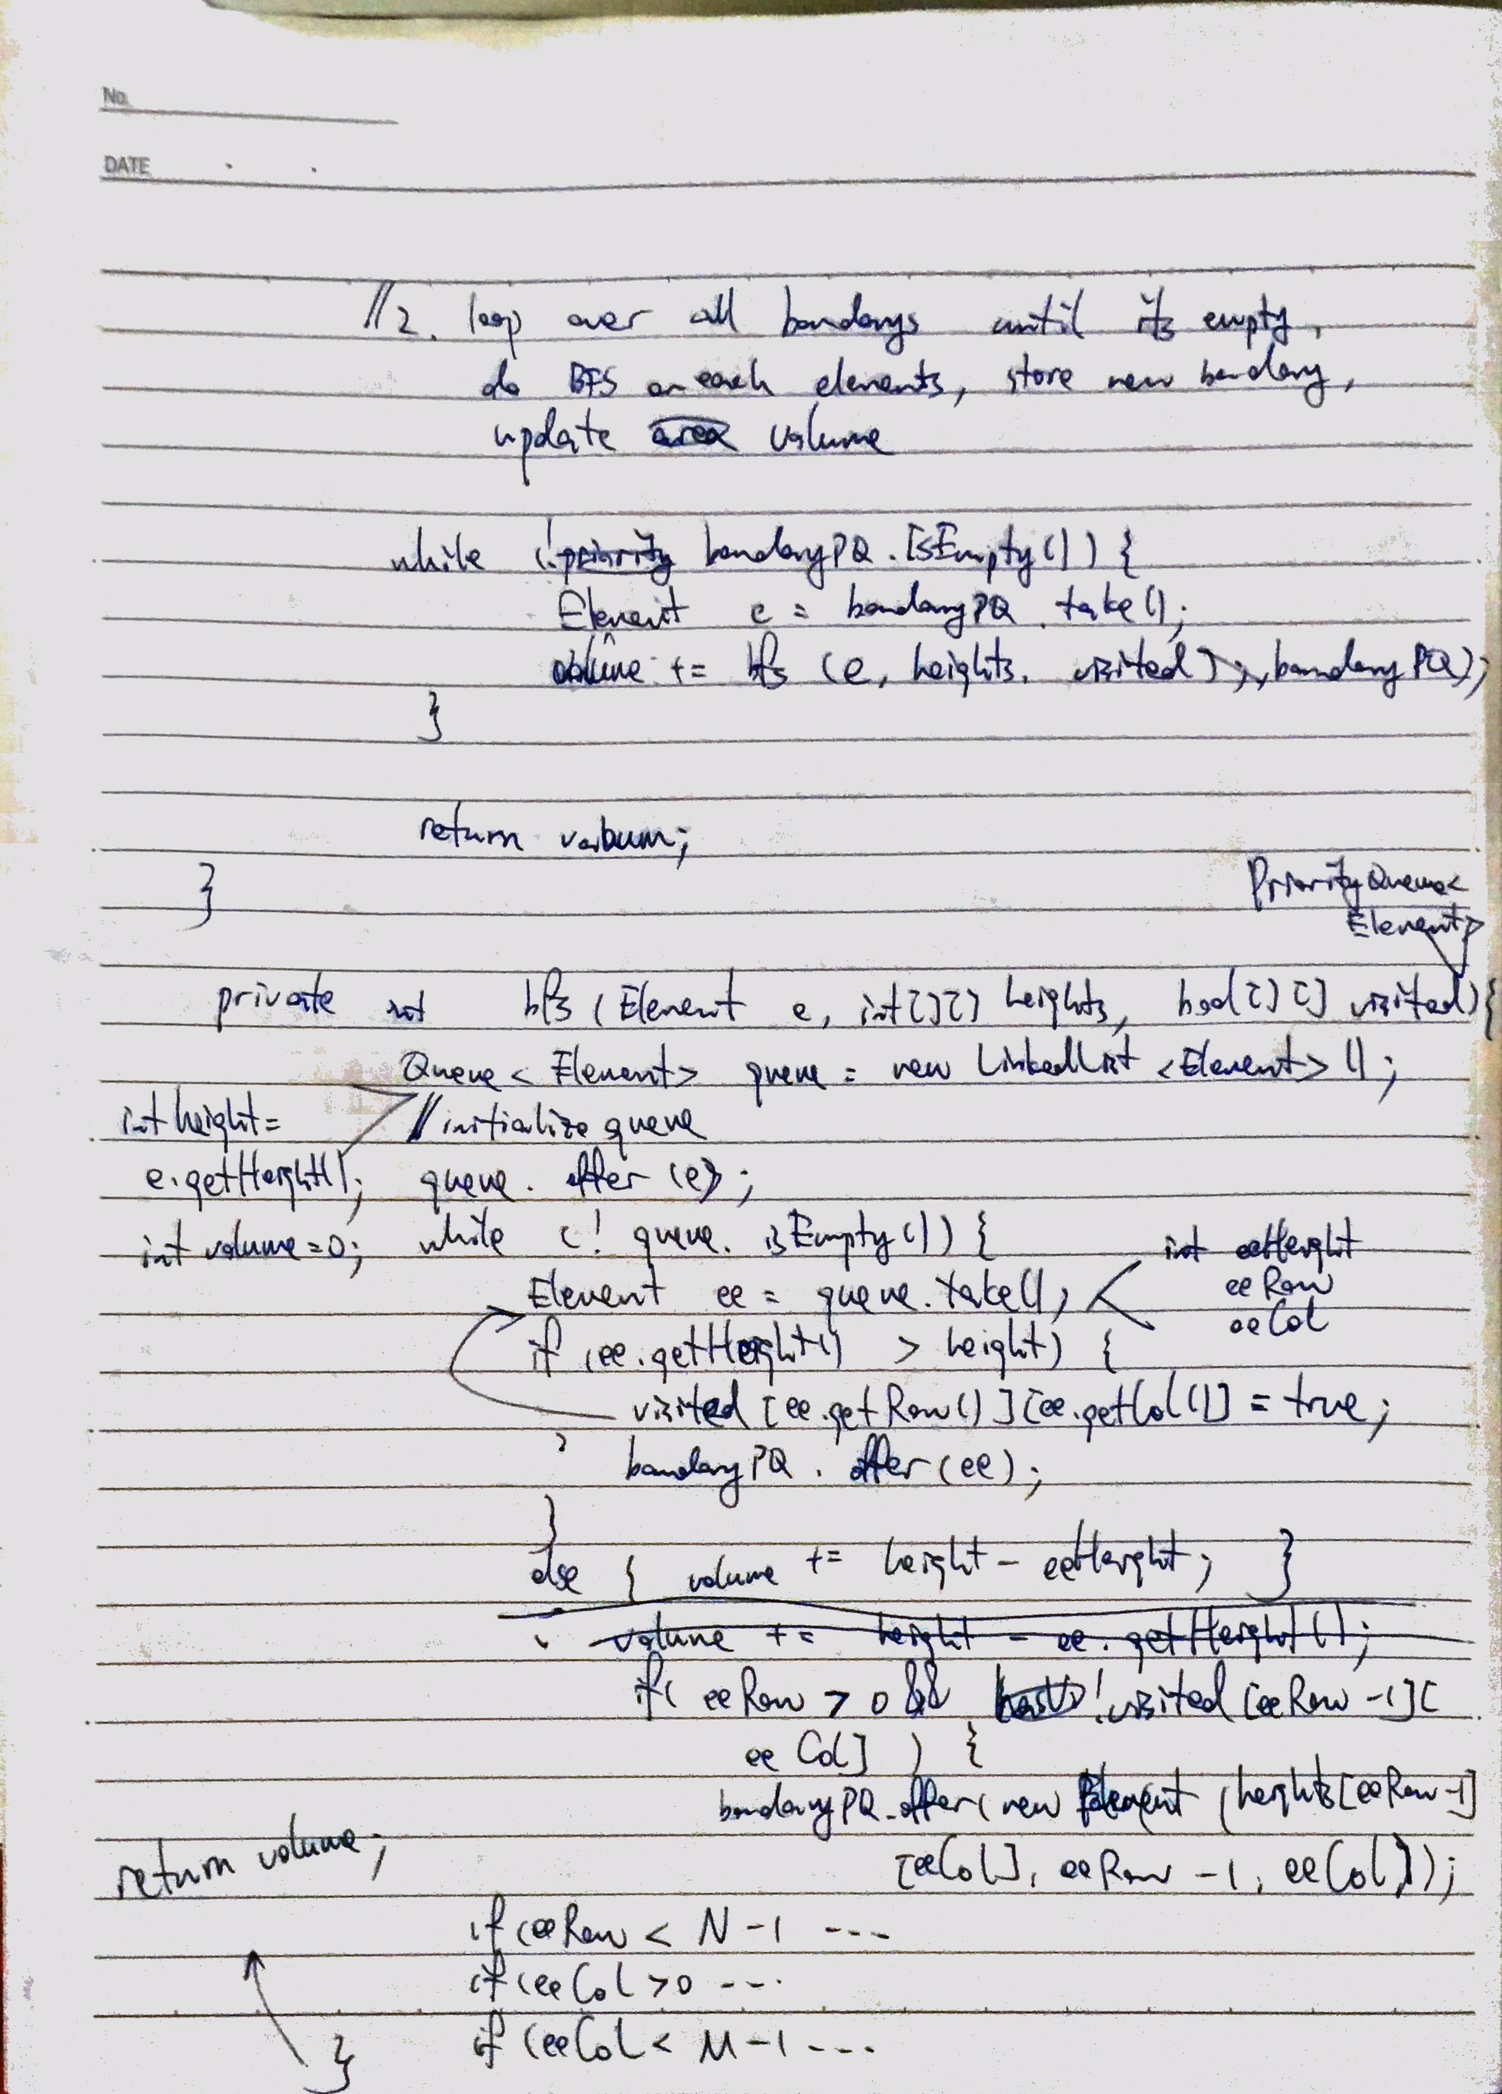 No.
DATE
//2. loop over all bondarys until its empty,
do BFS on each elements, store new bondary,
update area volume
while (!priority bondaryPQ.IsEmpty()) {
Element e = bondaryPQ.take();
volume += bfs (e, heights, visited);, bondaryPQ);
}
return volum;
}
PriorityQueue<
Element>
private int bfs (Element e, int[][] heights, bool[][] visited){
Queue<Element> queue = new LinkedList<Element>();
int height=
//initialize queue
e.getHeight();
queue.offer(e);
int volume=0;
while (!queue.isEmpty()) {
int eeHeight
Element ee = queue.take();
eeRow
eeCol
if (ee.getHeight() > height) {
visited[ee.getRow()][ee.getCol()] = true;
bondaryPQ.offer(ee);
}
else { volume += height - eeHeight; }
volume += height - ee.getHeight();
if( eeRow > 0 && !visited[eeRow-1][
eeCol] ) {
bondaryPQ.offer(new Element(heights[eeRow-1]
[eeCol], eeRow-1, eeCol));
return volume;
if(eeRow < N-1 ----
if(eeCol >0 ---
if(eeCol < M-1 ---
}